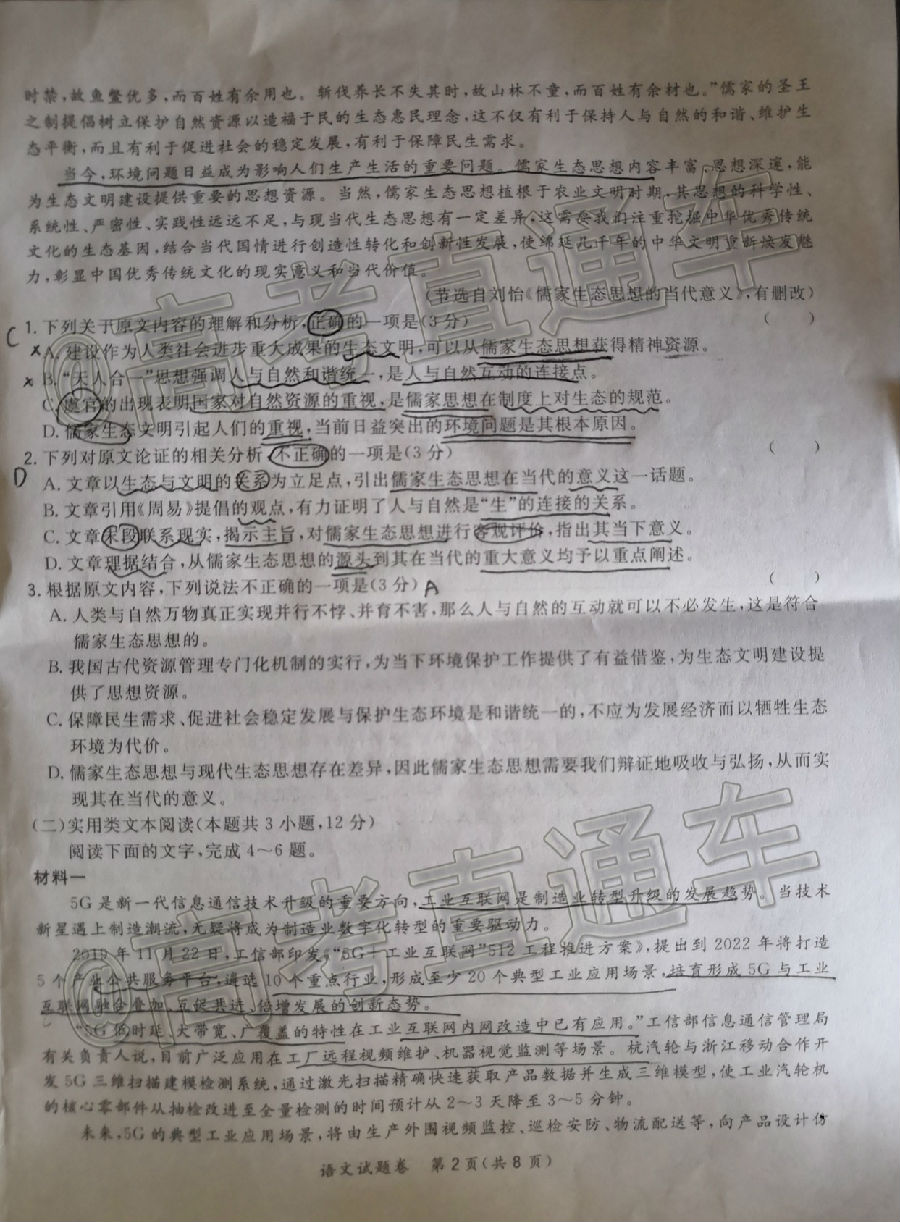 时禁,故鱼鳖优多,而百姓有余用也。斩伐养长不失其时,故山林不童,而百姓有余材也。”儒家的圣王
之制提倡树立保护自然资源以造福于民的生态惠民理念,这不仅有利于保持人与自然的和谐、维护生
态平衡,而且有利于促进社会的稳定发展,有利于保障民生需求。
当今,环境问题日益成为影响人们生产生活的重要问题。儒家生态思想内容丰富,思想深邃,能
为生态文明建设提供重要的思想资源。当然,儒家生态思想植根于农业文明时期,其思想的科学性、
系统性、严密性、实践性远远不足,与现当代生态思想有一定差异,这需要我们注重挖掘中华优秀传统
文化的生态基因,结合当代国情进行创造性转化和创新性发展,使绵延几千年的中华文明重新焕发魅
力,彰显中国优秀传统文化的现实意义和当代价值。
(节选自刘怡《儒家生态思想的当代意义》,有删改)
C 1.下列关于原文内容的理解和分析,正确的一项是(3分) ( )
x A.建设作为人类社会进步重大成果的生态文明,可以从儒家生态思想获得精神资源。
x B.“天人合一”思想强调人与自然和谐统一,是人与自然互动的连接点。
C.虞官的出现表明国家对自然资源的重视,是儒家思想在制度上对生态的规范。
D.儒家生态文明引起人们的重视,当前日益突出的环境问题是其根本原因。
D 2.下列对原文论证的相关分析,不正确的一项是(3分) ( )
A.文章以生态与文明的关系为立足点,引出儒家生态思想在当代的意义这一话题。
B.文章引用《周易》提倡的观点,有力证明了人与自然是“生”的连接的关系。
C.文章末段联系现实,揭示主旨,对儒家生态思想进行客观评价,指出其当下意义。
D.文章理据结合,从儒家生态思想的源头到其在当代的重大意义均予以重点阐述。
3.根据原文内容,下列说法不正确的一项是(3分) A ( )
A.人类与自然万物真正实现并行不悖、并育不害,那么人与自然的互动就可以不必发生,这是符合
儒家生态思想的。
B.我国古代资源管理专门化机制的实行,为当下环境保护工作提供了有益借鉴,为生态文明建设提
供了思想资源。
C.保障民生需求、促进社会稳定发展与保护生态环境是和谐统一的,不应为发展经济而以牺牲生态
环境为代价。
D.儒家生态思想与现代生态思想存在差异,因此儒家生态思想需要我们辩证地吸收与弘扬,从而实
现其在当代的意义。
(二)实用类文本阅读(本题共3小题,12分)
阅读下面的文字,完成4~6题。
材料一
5G是新一代信息通信技术升级的重要方向,工业互联网是制造业转型升级的发展趋势。当技术
新星遇上制造潮流,无疑将成为制造业数字化转型的重要驱动力。
2019年11月22日,工信部印发《“5G+工业互联网”512工程推进方案》,提出到2022年将打造
5个产业公共服务平台,遴选10个重点行业,形成至少20个典型工业应用场景,培育形成5G与工业
互联网融合叠加、互促共进、倍增发展的创新态势。
“5G低时延、大带宽、广覆盖的特性在工业互联网内网改造中已有应用。”工信部信息通信管理局
有关负责人说,目前广泛应用在工厂远程视频维护、机器视觉监测等场景。杭汽轮与浙江移动合作开
发5G三维扫描建模检测系统,通过激光扫描精确快速获取产品数据并生成三维模型,使工业汽轮机
的核心零部件从抽检改进至全量检测的时间预计从2~3天降至3~5分钟。
未来,5G的典型工业应用场景,将由生产外围视频监控、巡检安防、物流配送等,向产品设计仿
语文试题卷 第2页(共8页)
@高考直通车
@高考直通车